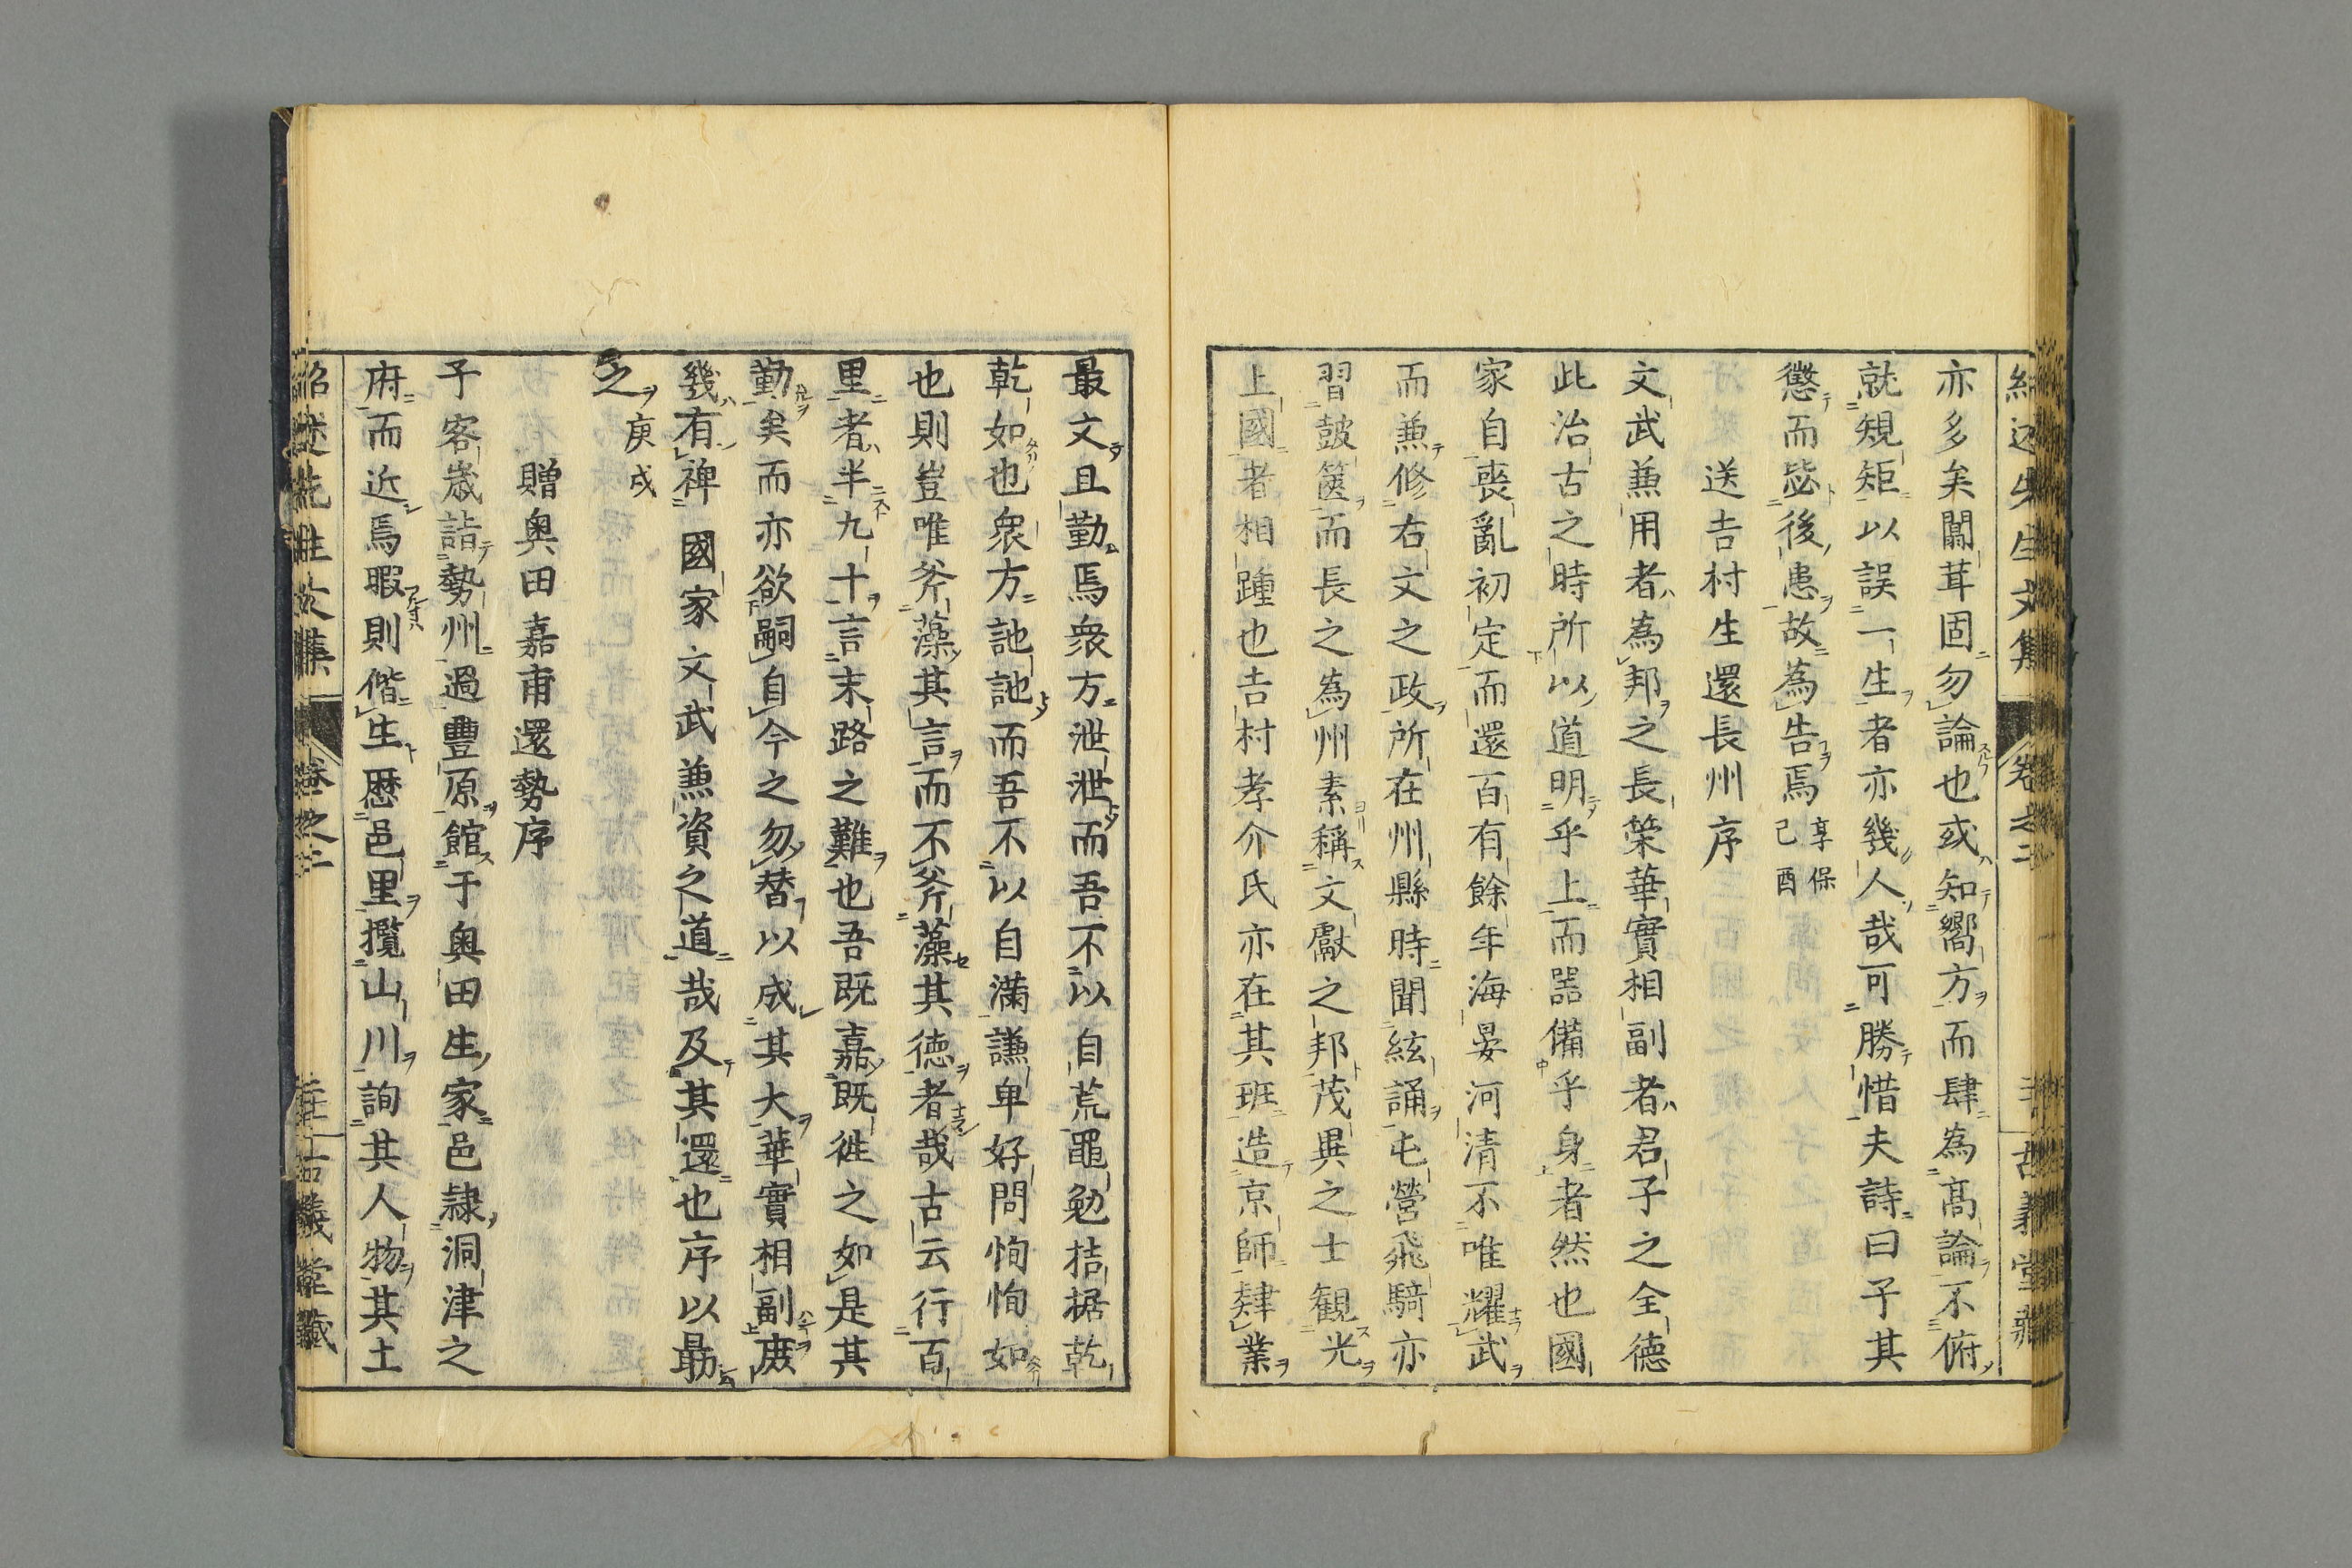 亦多矣闒茸固勿論也或知嚮方而肆為高論不俯
就規矩以誤一生者亦幾人哉可勝惜夫詩曰予其
懲而毖後患故為告焉享保己酉
送吉村生還長州序
文武兼用者為邦之長榮華實相副者君子之全德
此治古之時所以道明乎上而噐備乎身者然也國
家自喪亂初定而還百有餘年海晏河清不唯耀武
而兼修右文之政所在州縣時聞絃誦屯營飛騎亦
習皷篋而長之為州素稱文獻之邦茂異之士観光
上國者相踵也吉村孝介氏亦在其班造京師肄業
最文且勤焉衆方泄泄而吾不以自荒黽勉拮据乾
乾如也衆方訑訑而吾不以自滿謙卑好問恂恂如
也則豈唯斧藻其言而不斧藻其德者哉古云行百
里者半九十言末路之難也吾既嘉既徃之如是其
勤矣而亦欲嗣自今之勿替以成其大華實相副庻
幾有裨國家文武兼資之道哉及其還也序以朂
之庚戌
贈奥田嘉甫還勢序
予客歲詣勢州過豊原館于奥田生家邑隷洞津之
府而近焉暇則偕生歴邑里攬山川詢其人物其土
紹述先生文集 卷之二 古義堂藏